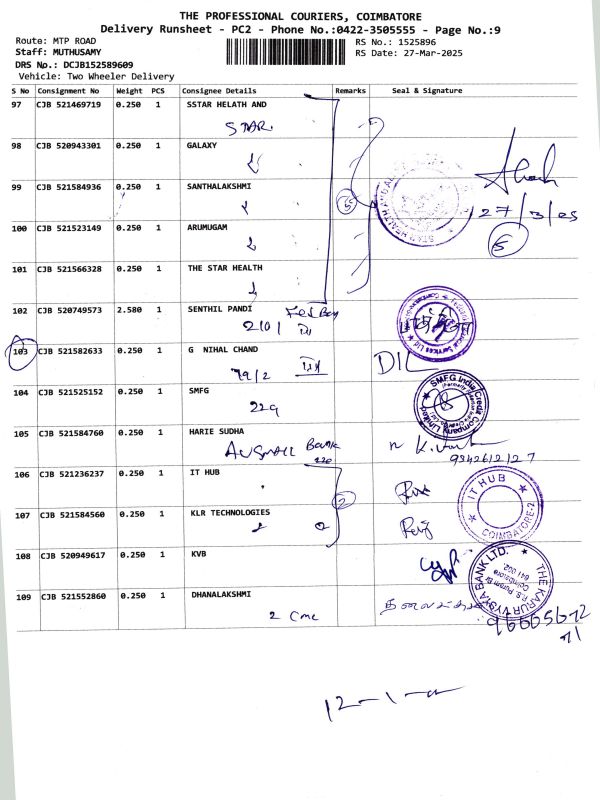 THE PROFESSIONAL COURIERS, COIMBATORE
Delivery Runsheet - PC2 - Phone No.:0422-3505555 - Page No.:9
Route: MTP ROAD
RS No.: 1525896
Staff: MUTHUSAMY
RS Date: 27-Mar-2025
DRS No.: DCJB152589609
Vehicle: Two Wheeler Delivery
S No Consignment No Weight PCS Consignee Details Remarks Seal & Signature
97 CJB 521469719 0.250 1 SSTAR HELATH AND
STAR
98 CJB 520943301 0.250 1 GALAXY
99 CJB 521584936 0.250 1 SANTHALAKSHMI
27/3/25
5
100 CJB 521523149 0.250 1 ARUMUGAM
5
101 CJB 521566328 0.250 1 THE STAR HEALTH
102 CJB 520749573 2.580 1 SENTHIL PANDI
103 CJB 521582633 0.250 1 G NIHAL CHAND
79/2
104 CJB 521525152 0.250 1 SMFG
SMFG India Credit Company Limited
229
105 CJB 521584760 0.250 1 HARIE SUDHA
AU SMALL BANK
9342612127
106 CJB 521236237 0.250 1 IT HUB
2
IT HUB
COIMBATORE-2
107 CJB 521584560 0.250 1 KLR TECHNOLOGIES
108 CJB 520949617 0.250 1 KVB
THE KARUR VYSYA BANK LTD.
R.S. Puram Br
Coimbatore
641 002.
109 CJB 521552860 0.250 1 DHANALAKSHMI
2 cmc